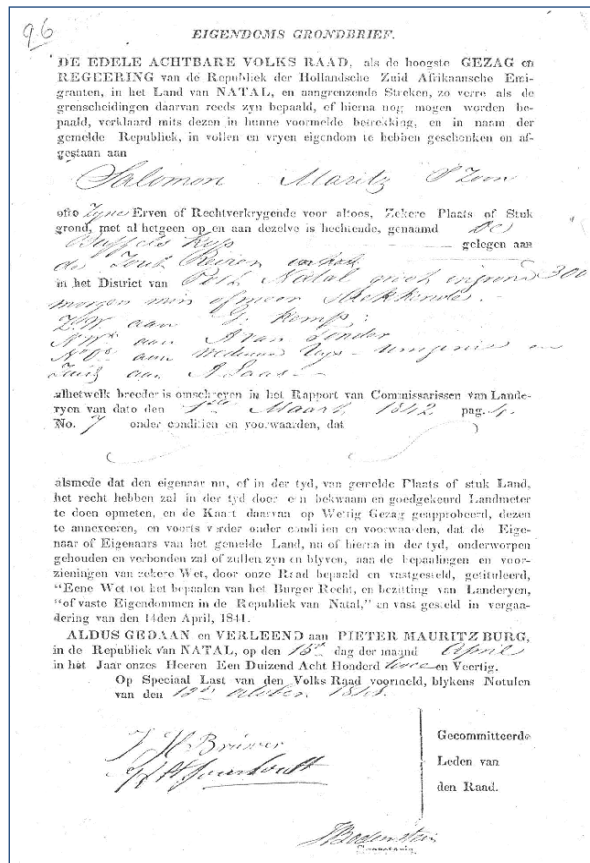 96
EIGENDOMS GRONDBRIEF.
DE EDELE ACHTBARE VOLKS RAAD, als de hoogste GEZAG en
REGEERING van de Republiek der Hollandsche Zuid Afrikaansche Emi-
granten, in het Land van NATAL, en aangrenzende Streken, zo verre als de
grenscheidingen daarvan reeds zyn bepaald, of hierna nog mogen worden be-
paald, verklaard mits dezen in hunne voormelde betrekking, en in naam der
gemelde Republiek, in vollen en vryen eigendom te hebben geschonken en af-
gestaan aan
Salomon Maritz PZoon
ofte Zyne Erven of Rechtverkrygende voor altoos, Zekere Plaats of Stuk
grond, met al hetgeen op en aan dezelve is hechtende, genaamd De
Buffels Kop gelegen aan
de Zout Rivier
in het District van Port Natal groot 300
morgen min of meer
Z.W. aan J. Kemp:
aan A van
aan
Zuid aan A
alhetwelk breeder is omschreven in het Rapport van Commissarissen van Lande-
ryen van dato den 1ste Maart, 1842 pag. 4.
No. 7 onder conditien en voorwaarden, dat
alsmede dat den eigenaar nu, of in der tyd, van gemelde Plaats of stuk Land,
het recht hebben zal in der tyd door een bekwaam en goedgekeurd Landmeter
te doen opmeten, en de Kaart daarvan op Wettig Gezag geapprobeerd, dezen
te annexeeren, en voorts verder onder conditien en voorwaarden, dat de Eige-
naar of Eigenaars van het gemelde Land, nu of hierna in der tyd, onderworpen
gehouden en verbonden zal of zullen zyn en blyven, aan de bepaalingen en voor-
zieningen van zekere Wet, door onze Raad bepaald en vastgesteld, getituleerd,
"Eene Wet tot het bepaalen van het Burger Recht, en bezitting van Landeryen,
"of vaste Eigendommen in de Republiek van Natal," en vast gesteld in vergaa-
dering van den 14den April, 1841.
ALDUS GEDAAN en VERLEEND aan PIETER MAURITZ BURG,
in de Republiek van NATAL, op den 15de dag der maand April
in het Jaar onzes Heeren Een Duizend Acht Honderd twee en Veertig.
Op Speciaal Last van den Volks Raad voormeld, blykens Notulen
van den October
Gecommitteerde
Leden van
den Raad.
J H Bruwer
J Bodenstein
Secretaris